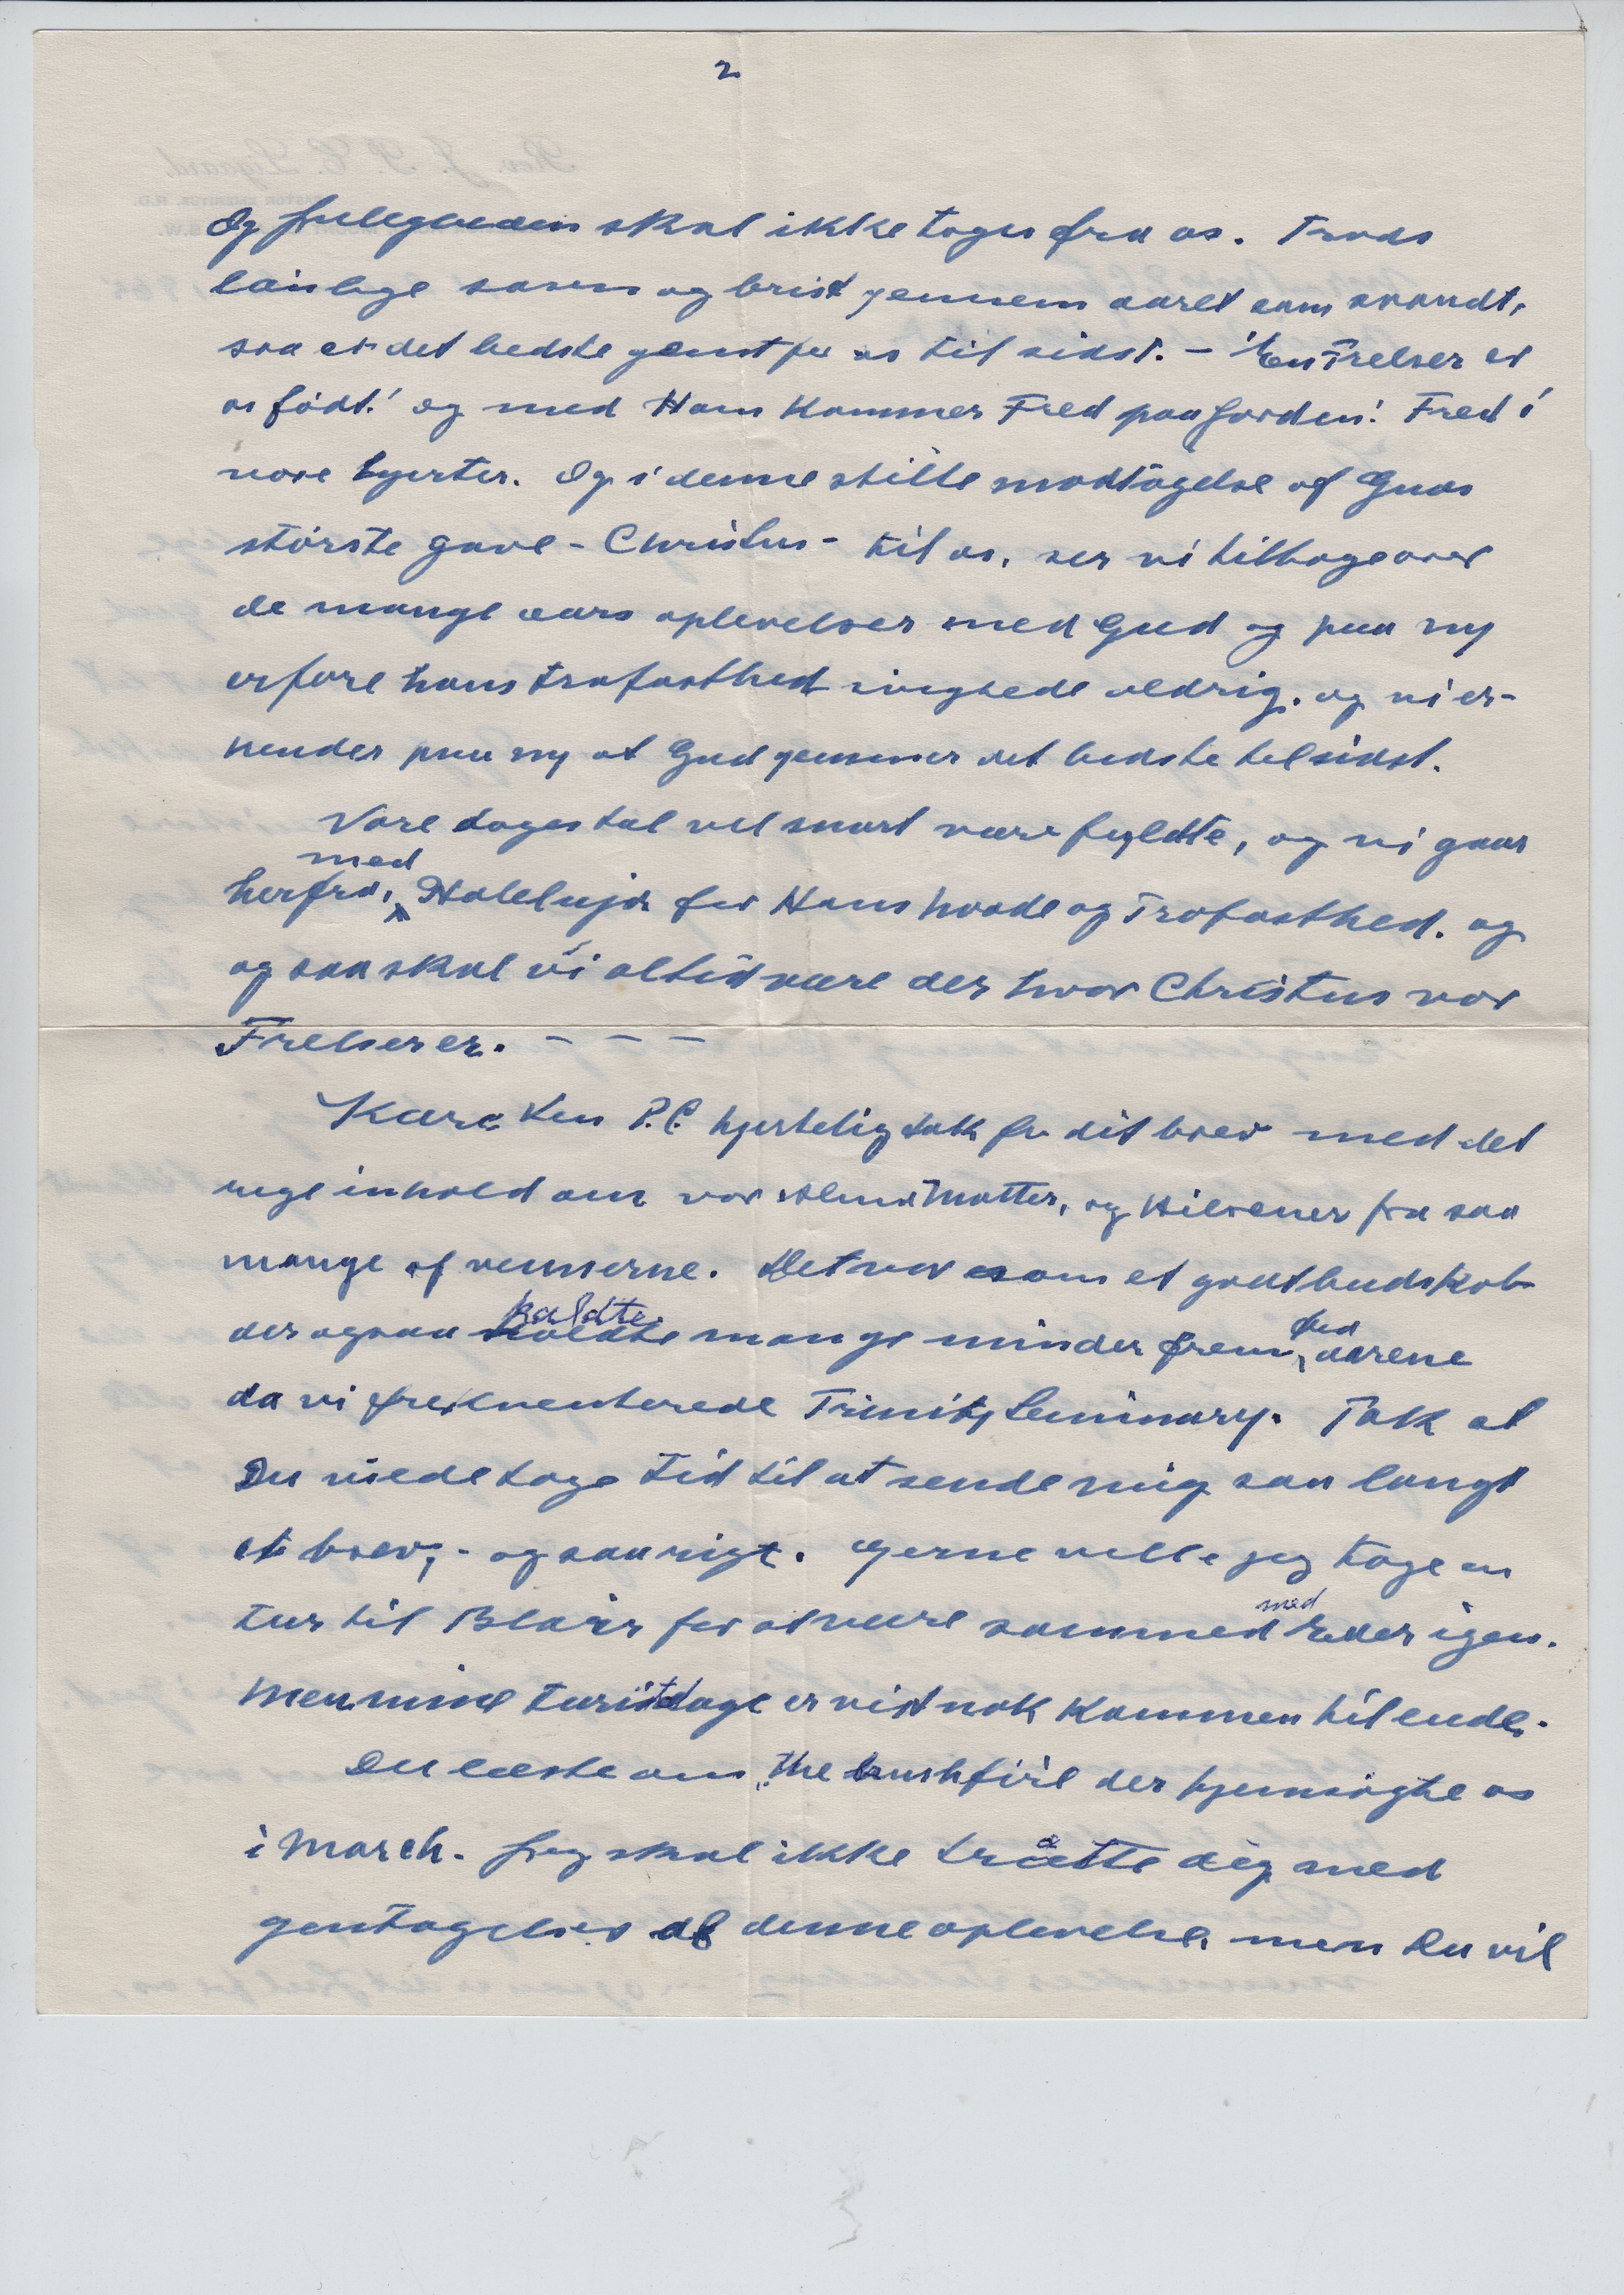 2
Og juleglæden skal ikke tages fra os. Trods
savn og brist gennem aaret som svandt,
saa er det bedste gemt for os til sidst. - 'En Frelser er
os født.' og med Ham kommer Fred paa Jorden! Fred i
vore hjerter. Og i denne stille modtagelse af Guds
störste gave - Christus - til os, ser vi tilbage over
de mange aars oplevelser med Gud og paa ny
erfare hans trofasthed svigtede aldrig. og vi er-
kender paa ny at Gud gemmer det bedste til sidst.
Vore dages tal vel snart være fyldte, og vi gaar
med
herfra, Haleluja for Hans Naade og Trofasthed. og
og saa skal vi altid være der hvor Christus vor
Frelser er. - - -
Kære Ven P.C. hjertelig tak for dit brev med det
rige inhold om vor Alma Matter, og Hilsener fra saa
mange af vennerne. Det var som et godt budskab
kaldte ved
der ogsaa kaldte mange minder frem, aarene
da vi frekventerede Trinity Seminary. Tak at
Du vilde tage Tid til at sende mig saa langt
et brev, - og saa rigt. Gerne ville jeg tage en
med
tur til Blair for at være sammed Eder igen.
Men mine turistdage er vist nok kommen til ende.
Du læste om "the brushfire der hjemsøgte os
i March. Jeg skal ikke trætte dig med
gentagelser af denne oplevelse, men Du vil
Rev. J. P. C.